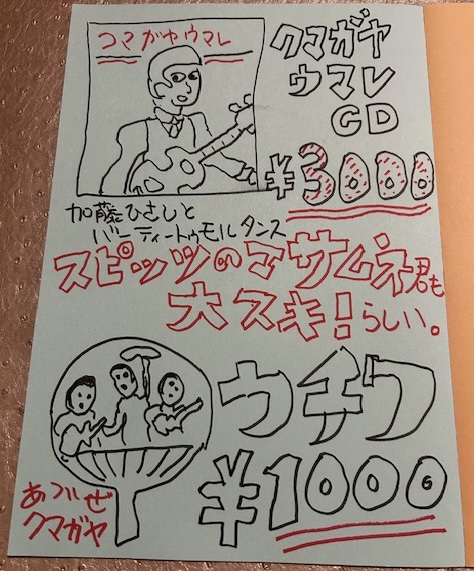 コマガヤウマレ
クマガヤ
ウマレ
CD
¥3000
加藤ひさしと
バーティートゥモルタンス
スピッツのマサムネ君も
大スキ!らしい。
ウチワ
¥1000
あついぜ
クマガヤ